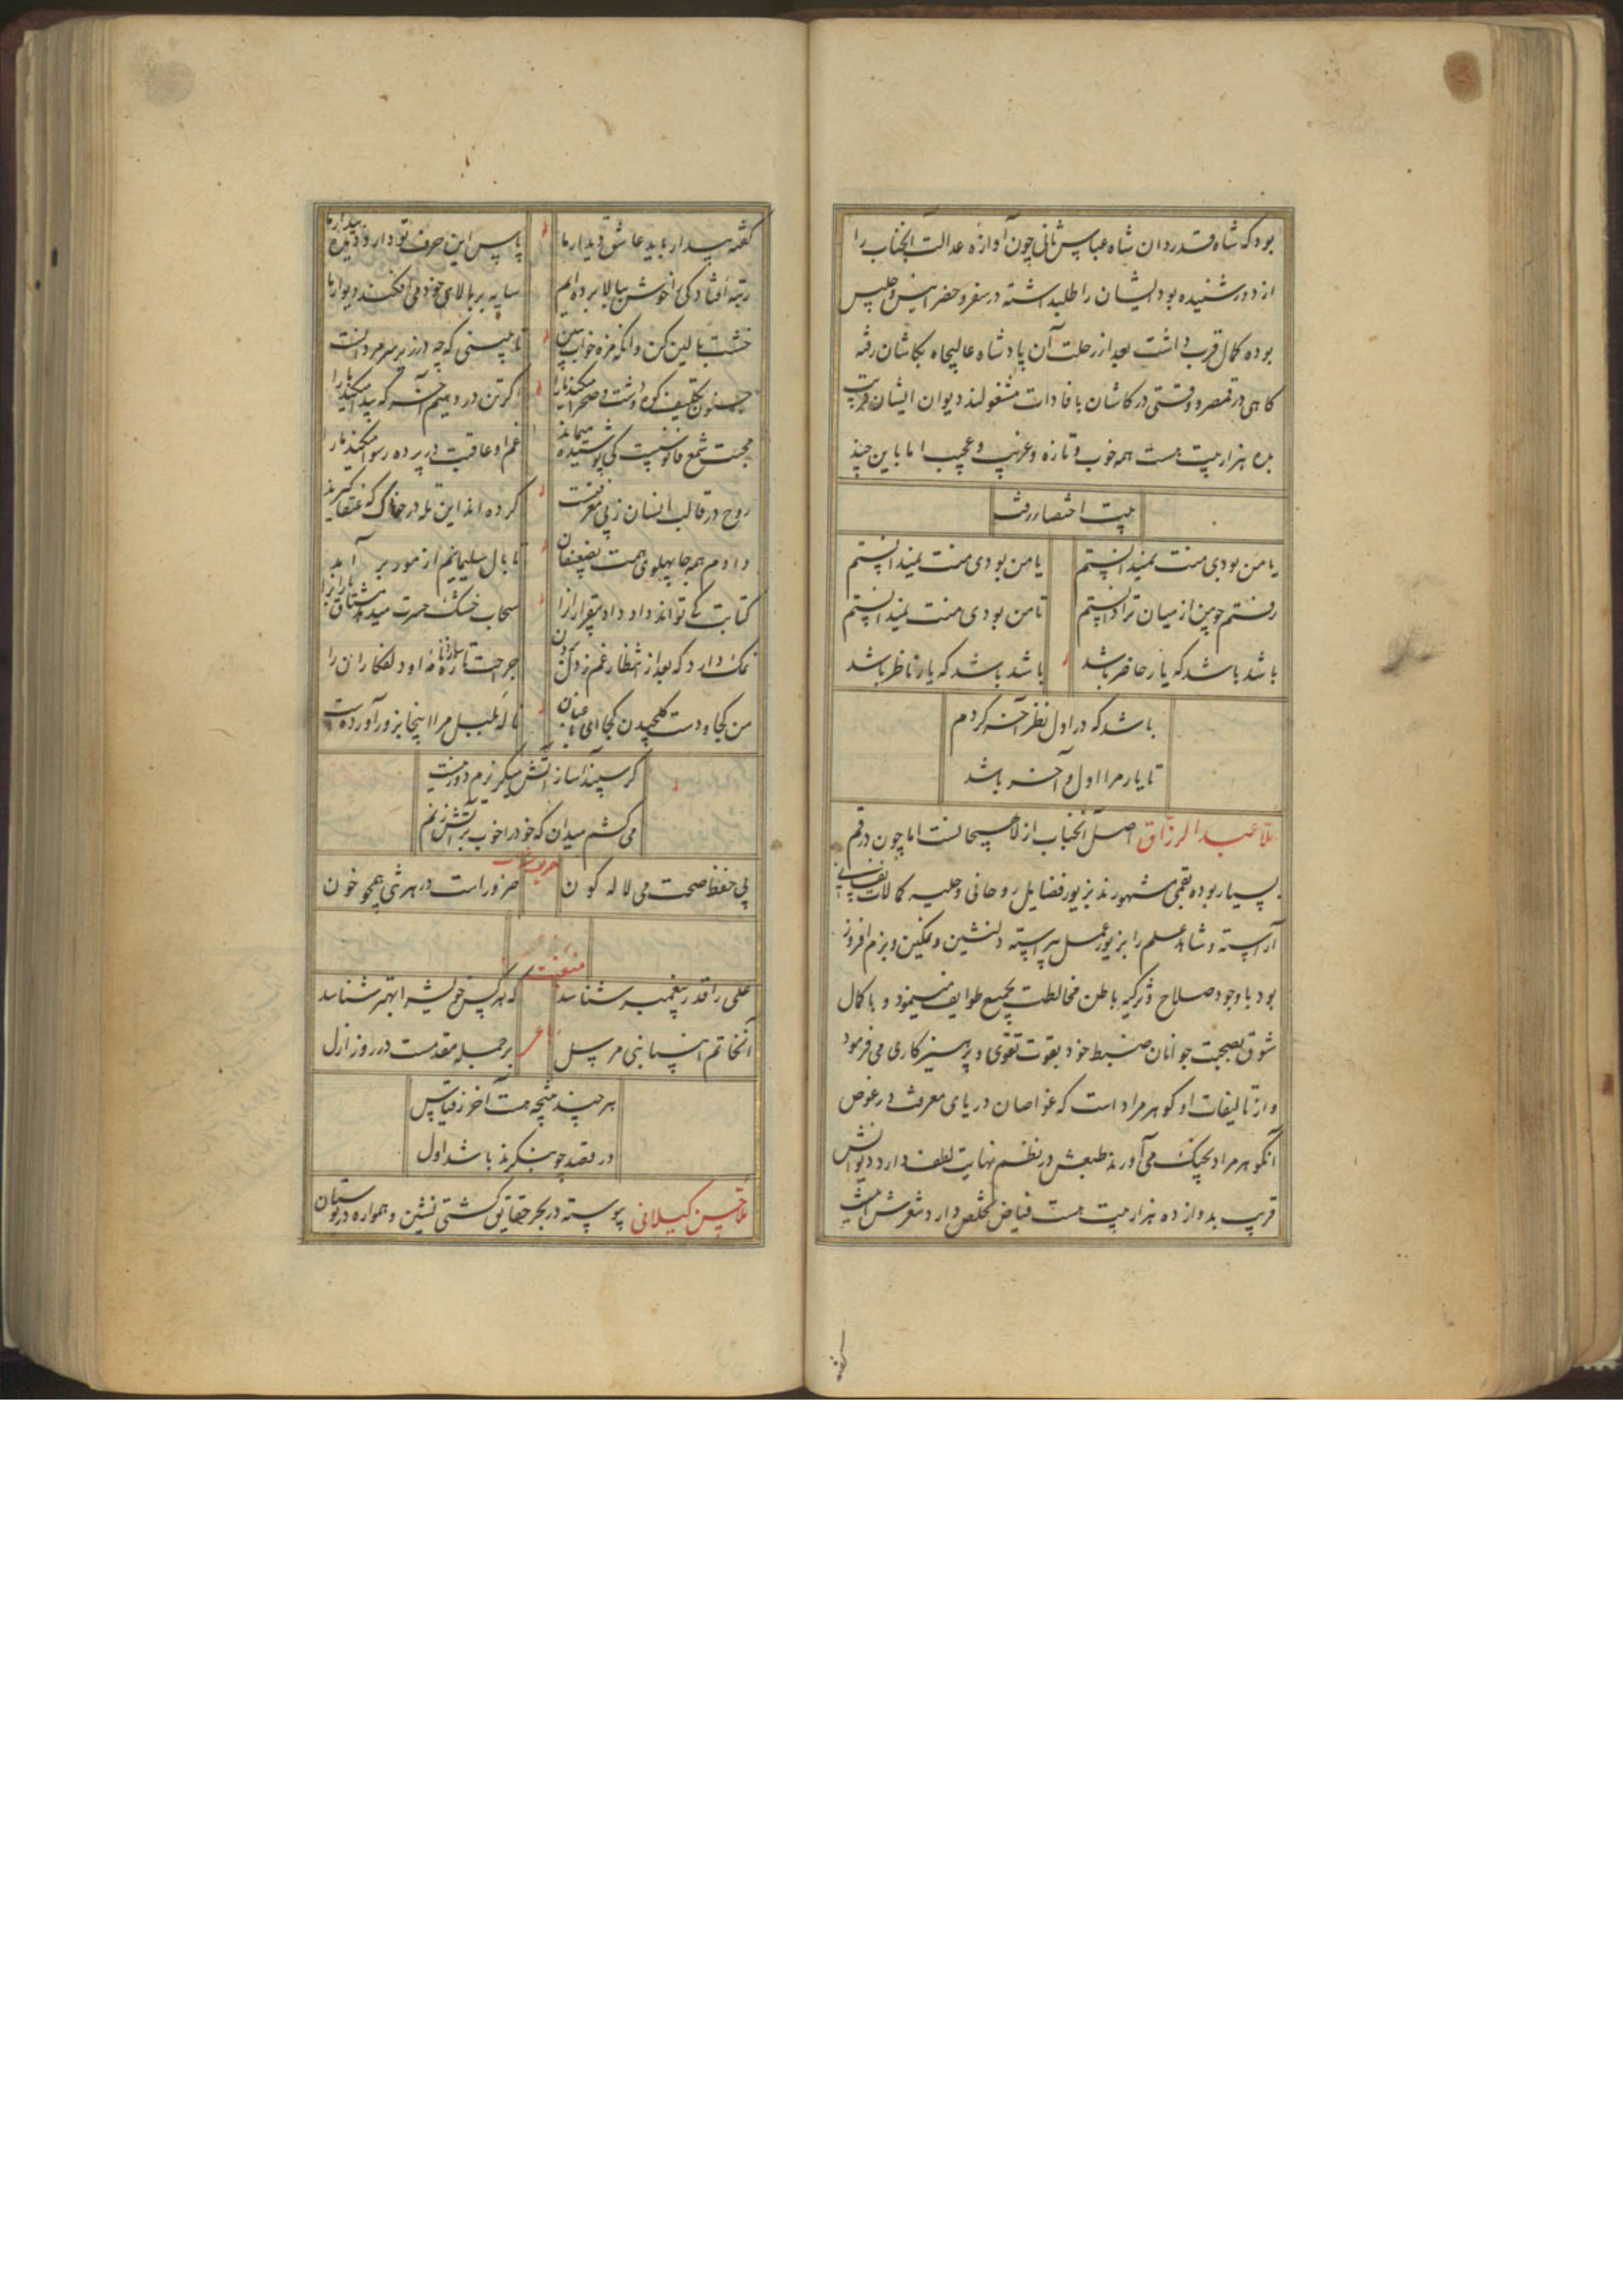 بود که شاه قدردان شاه عباس ثانی چون آوازه عدالت آنجناب را
از دور شنیده بود ایشان را طلب داشته در سفر و حضر انیس و جلیس
بوده کمال قرب داشت بعد از رحلت آن پادشاه عالیجاه بکاشان رفته
کاهی در قمصر و وقتی در کاشان بافادات مشغولند دیوان ایشان قریب
بده هزار بیت هست همه خوب و تازه و غریب و عجیب اما باین چند
بیت اختصار رفت
یا من بودی منت نمیدانستم
یا من بودی منت نمیدانستم
رفتم چو من از میان ترا دانستم
تا من بودی منت نمیدانستم
باشد باشد که یار حاضر باشد
باشد باشد که یار ناظر باشد
باشد که در اول نظر آخر کردم
تا یار مرا اول و آخر باشد
ملا عبد الرزاق اصل آنجناب از لاهیجانست اما چون در قم
بسیار بوده بقمی مشهورند بزیور فضایل روحانی و حلیه کمالات نفسانی
آراسته و شاهد علم را بزیور عمل پیراسته دلنشین و نمکین و بزم افروز
بود با وجود صلاح و تزکیه باطن مخالطت بجمیع طوایف مینمود و با کمال
شوق بصحبت جوانان ضبط خود بقوت تقوی و پرهیزکاری می فرمود
و از تالیفات او کوهر مراد است که غواصان دریای معرفت در غوص
آن کوهر مراد بچنک می آورند طبعش در نظم نهایت لطف دارد دیوانش
قریب بدوازده هزار بیت هست فیاض تخلص دارد شعرش اینست
کفته بیدار باید عاشق دیدار ما
پاس این حرف تو دارد دیده بیدار ما
رتبه افتادکی را خوش ببالا برده ایم
سایه بر بالای خود می افکند دیوار ما
خشت بالین کن وانکه مزه خواب ببین
تا ببینی که چه در زیر سر مردانست
جنون تکلیف کوه و دشت و صحرا میکند ما را
اکر تن در دهیم آخر که پیدا میکند ما را
محبت شمع فانوسست کی پوشیده میماند
غم او عاقبت در پرده رسوا میکند ما را
روح در قالب انسان ز پی معرفت
کرده اند این تله در خاک که عنقا کیرند
دادم همه جا پهلوی همت بضعیفان
تا بال سلیمانیم از مور بر آمد
کتابت کی تواند داد داد بیقراران را
سحاب خشک حسرت میدهد مشتاق باران را
نمک دارد که بعد از انتظارم غم ز دل بردن
جراحت تازه سازد نامه او دلفکاران را
من کجا و دست کلچیدن کجا ای باغبان
ناله بلبل مرا اینجا بزور آورده است
کر سپند آسا ز آتش میکریزم دور نیست
می کشم میدان که خود را خوب بر آتش زنم
پی حفظ صحت می لاله کون
ضرور است در هر شی همچو خون
منقبت
علی را قدر پیغمبر شناسد
که هر کس خویش را بهتر شناسد
آن خاتم انبیا نبی مرسل
بر جمله مقدمست در روز ازل
هر چند نتیجه هست آخر ز قیاس
در قصد چو بنکرند باشد اول
ملا حسن کیلانی پیوسته در بحر حقایق کشتی نشین و همواره در بوستان